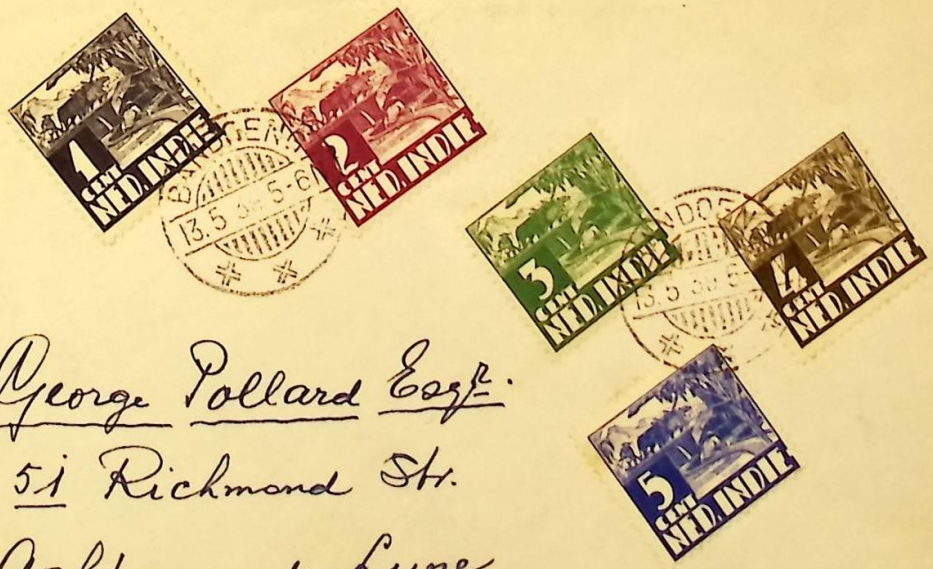 1
CENT
NED. INDIE
2
CENT
NED. INDIE
13.5 38 5-6
3
CENT
NED. INDIE
4
CENT
NED. INDIE
13.5 38 5-
5
CENT
NED. INDIE
George Pollard Esqr.
51 Richmond Str.